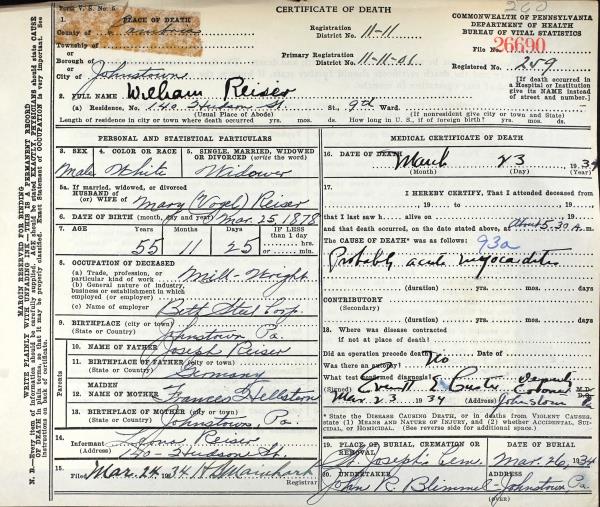 Form V. S. No. 5
CERTIFICATE OF DEATH
COMMONWEALTH OF PENNSYLVANIA
DEPARTMENT OF HEALTH
BUREAU OF VITAL STATISTICS
1. PLACE OF DEATH
County of Cambria
Registration District No. 11-11
File No. 26690
Township of
Primary Registration District No. 11-11-01
Registered No. 259
Borough of
City of Johnstown
(If death occurred in a Hospital or Institution give its NAME instead of street and number.)
2. FULL NAME William Reiser
(a) Residence, No. 140 Hudson St. St., 9th Ward.
(Usual Place of Abode) (If nonresident give city or town and State)
Length of residence in city or town where death occurred yrs. mos. ds. How long in U. S., if of foreign birth? yrs. mos. ds.
PERSONAL AND STATISTICAL PARTICULARS
3. SEX Male
4. COLOR OR RACE White
5. SINGLE, MARRIED, WIDOWED OR DIVORCED (write the word) Widower
5a. If married, widowed, or divorced
HUSBAND of
(or) WIFE of Mary (Vogel) Reiser
6. DATE OF BIRTH (month, day and year) Mar. 25 1878
7. AGE Years Months Days IF LESS than 1 day, hrs. or min.
55 11 25
8. OCCUPATION OF DECEASED
(a) Trade, profession, or particular kind of work Mill-Wright
(b) General nature of industry, business or establishment in which employed (or employer)
(c) Name of employer Beth Steel Corp.
9. BIRTHPLACE (city or town) Johnstown Pa.
(State or Country)
Parents
10. NAME OF FATHER Joseph Reiser
11. BIRTHPLACE OF FATHER (city or town)
(State or Country) Germany
12. MAIDEN NAME OF MOTHER Frances Hellstern
13. BIRTHPLACE OF MOTHER (city or town)
(State or Country) Johnstown, Pa.
14. Informant Reiser
(Address) 140 Hudson St.
15. Filed Mar. 24, 1934
MEDICAL CERTIFICATE OF DEATH
16. DATE OF DEATH March 23 1934
(Month) (Day) (Year)
17. I HEREBY CERTIFY, That I attended deceased from
, 19 , to , 19 ,
that I last saw h alive on , 19 ,
and that death occurred, on the date stated above, at About 5:30 A. m.
THE CAUSE OF DEATH* was as follows: 93a
Probably acute myocarditis
(duration) yrs. mos. ds.
CONTRIBUTORY
(Secondary)
(duration) yrs. mos. ds.
18. Where was disease contracted
if not at place of death?
Did an operation precede death? No Date of
Was there an autopsy?
What test confirmed diagnosis?
(Signed) Custer Deputy Coroner M.D.
Mar. 23, 1934 (Address) Johnstown Pa
* State the DISEASE CAUSING DEATH, or in deaths from VIOLENT CAUSES, state (1) MEANS AND NATURE OF INJURY, and (2) whether ACCIDENTAL, SUICIDAL, or HOMICIDAL. (See reverse side for additional space.)
19. PLACE OF BURIAL, CREMATION OR REMOVAL St Joseph's Cem.
DATE OF BURIAL Mar. 26, 1934
20. UNDERTAKER John R. Blimmel
ADDRESS Johnstown, Pa.
(OVER)
MARGIN RESERVED FOR BINDING
WRITE PLAINLY WITH UNFADING INK—THIS IS A PERMANENT RECORD
N. B.—Every item of information should be carefully supplied. AGE should be stated EXACTLY. PHYSICIANS should state CAUSE OF DEATH in plain terms, so that it may be properly classified. Exact Statement of OCCUPATION is very important. See instructions on back of certificate.